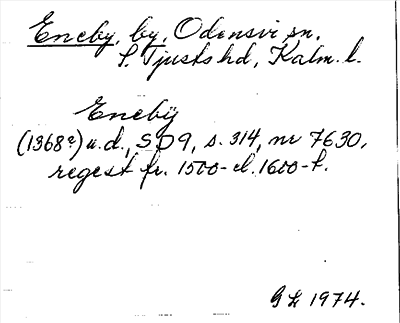 Eneby, by, Odensvi sn,
S. Tjusts hd, Kalm. l.
Enebÿ
(1368?) u.d., SD 9, s. 314, nr 7630,
regest fr. 1500- el. 1600-t.
GL 1974.